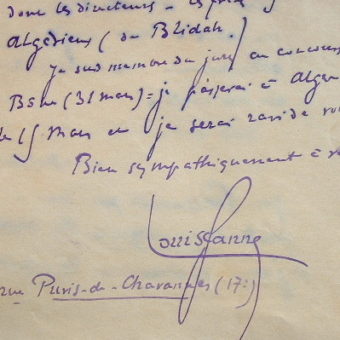 dont les directeurs
Algériens (ou Blidah.)
Je suis membre du jury au concours
(31 mars) = je passerai à Alger
le 15 mars et je serai ravi de
Bien sympathiquement à
Louis Ganne
rue Puvis-de-Chavannes (17e)